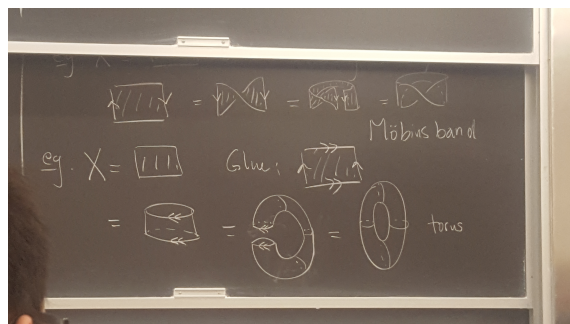 = = =
Möbius band
eg. X = Glue:
= = = torus